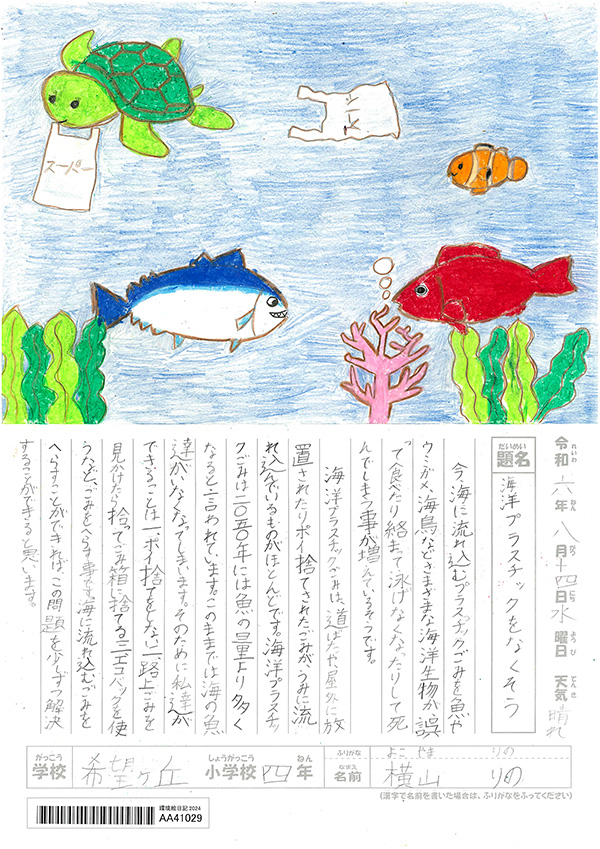 スーパー
スーパー
令和六年八月十四日水曜日 天気 晴れ
れいわ ねん がつ にち ようび てんき
だいめい
題名
海洋プラスチックをなくそう
今、海に流れ込むプラスチックごみを魚や
ウミガメ、海鳥などさまざまな海洋生物が誤
って食べたり絡まって泳げなくなったりして死
んでしまう事が増えているそうです。
海洋プラスチックごみは、道ばたや屋外に放
置されたりポイ捨てされたごみがうみに流
れ込んでいるものがほとんどです。海洋プラスチッ
クごみは二〇五〇年には魚の量より多く
なると言われています。このままでは海の魚
達がいなくなってしまいます。そのために私達が
できることは一、ポイ捨てをしない二、路上ごみを
見かけたら拾ってごみ箱に捨てる三、エコバックを使
うなど、ごみをへらす事です。海に流れ込むごみを
へらすことができれば、この問題を少しずつ解決
することができると思います。
がっこう しょうがっこう ねん ふりがな よこやま りの
学校 希望ヶ丘 小学校 四年 なまえ 名前 横山 りの
(漢字で名前を書いた場合は、ふりがなをふってください)
環境絵日記 2024
AA41029